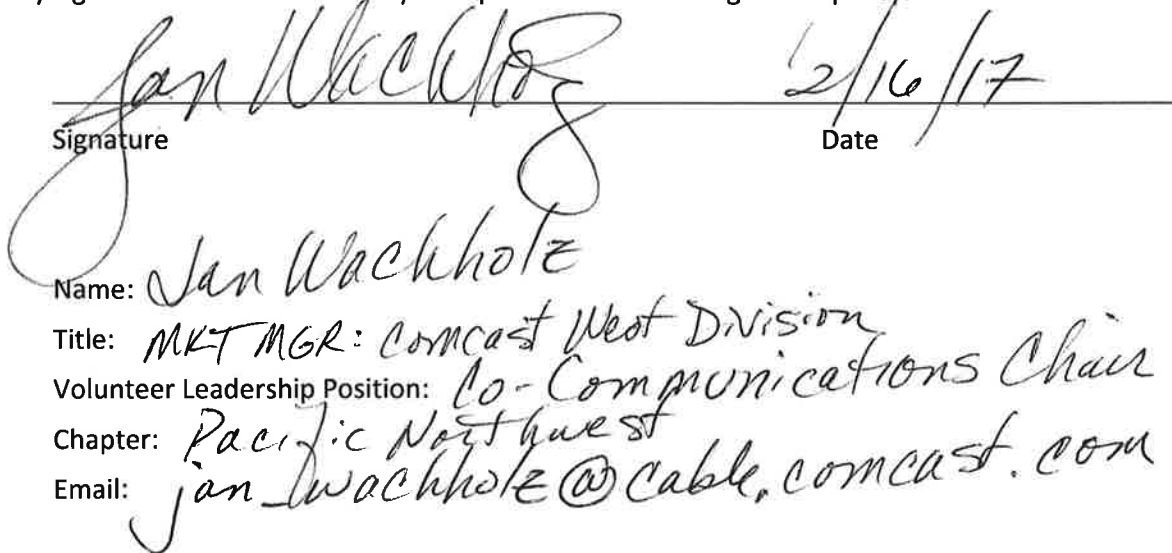 Jan Wachholz 2/16/17
Signature Date
Name: Jan Wachholz
Title: MKT MGR: Comcast West Division
Volunteer Leadership Position: Co-Communications Chair
Chapter: Pacific Northwest
Email: jan_wachholz@cable.comcast.com